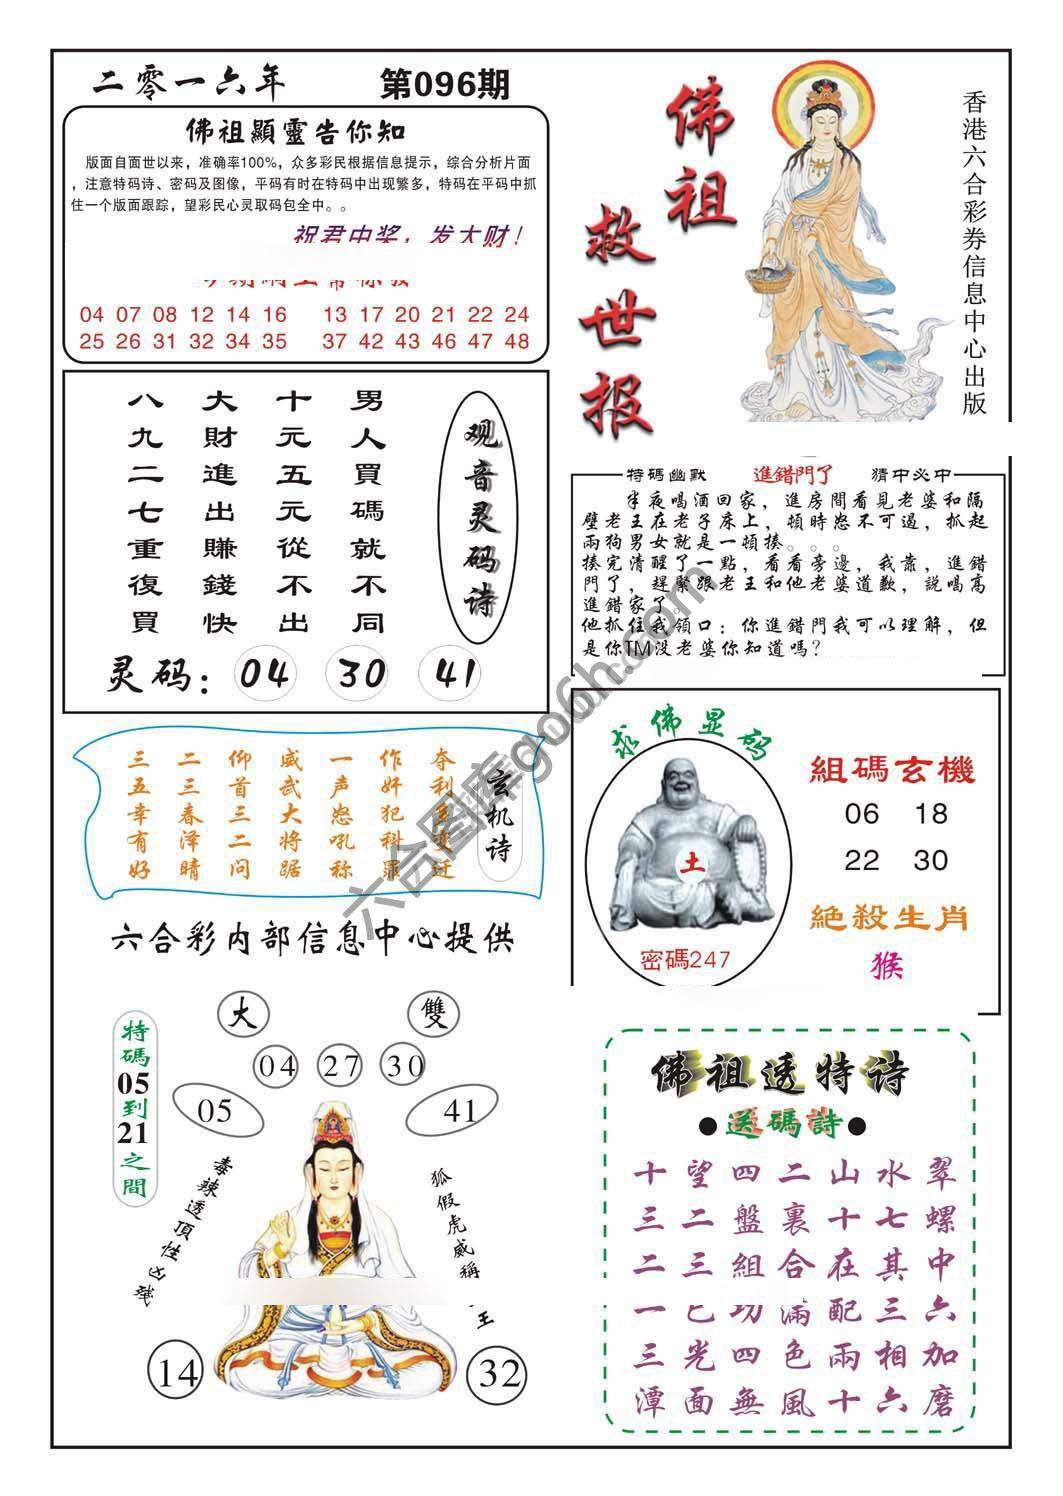 二零一六年 第096期
佛祖顯靈告你知
版面自面世以来，准确率100%，众多彩民根据信息提示，综合分析片面
，注意特码诗、密码及图像，平码有时在特码中出现繁多，特码在平码中抓
住一个版面跟踪，望彩民心灵取码包全中。。
祝君中奖，发大财！
04 07 08 12 14 16 13 17 20 21 22 24
25 26 31 32 34 35 37 42 43 44 47 48
佛祖
救世报
香港六合彩券信息中心出版
观音灵码诗
男人買碼就不同
十元五元從不出
大財進出賺錢快
八九二七重復買
灵码：04 30 41
特碼幽默 進錯門了 猜中必中
半夜喝酒回家，進房間看見老婆和隔
壁老王在老子床上，頓時怒不可遏，抓起
兩狗男女就是一頓揍。。。
揍完清醒了一點，看看旁邊，我靠，進錯
門了，趕緊跟老王和他老婆道歉，説喝高
進錯家了。
他抓住我領口：你進錯門我可以理解，但
是你TM没老婆你知道嗎？
玄机诗
作奸犯科罪
一声怒吼称
威武大将踞
仰首三二问
二三春泽晴
三五幸有好
六合彩内部信息中心提供
求佛显码
土
密碼247
組碼玄機
06 18
22 30
絶殺生肖
猴
大 雙
04 27 30
05 41
特碼05到21之間
毒辣透頂性凶残
狐假虎威稱
王
14 32
佛祖透特诗
●送碼詩●
十望四二山水翠
三二盤裏十七螺
二三組合在其中
滿配三六
三光四色兩相加
潭面無風十六磨
六合图库go6h.com